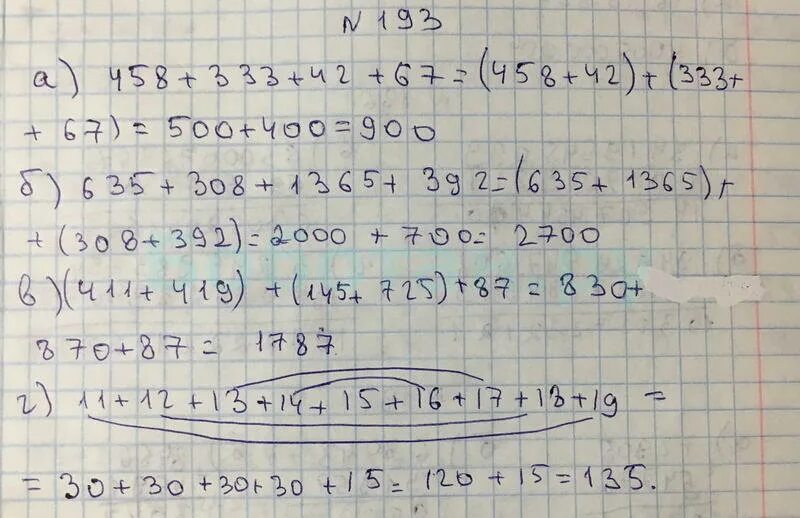 N 193
а) 458 + 333 + 42 + 67 = (458 + 42) + (333 +
+ 67) = 500 + 400 = 900
б) 635 + 308 + 1365 + 392 = (635 + 1365) +
+ (308 + 392) = 2000 + 700 = 2700
в) (411 + 419) + (145 + 725) + 87 = 830 +
870 + 87 = 1787
г) 11 + 12 + 13 + 14 + 15 + 16 + 17 + 18 + 19 =
= 30 + 30 + 30 + 30 + 15 = 120 + 15 = 135.